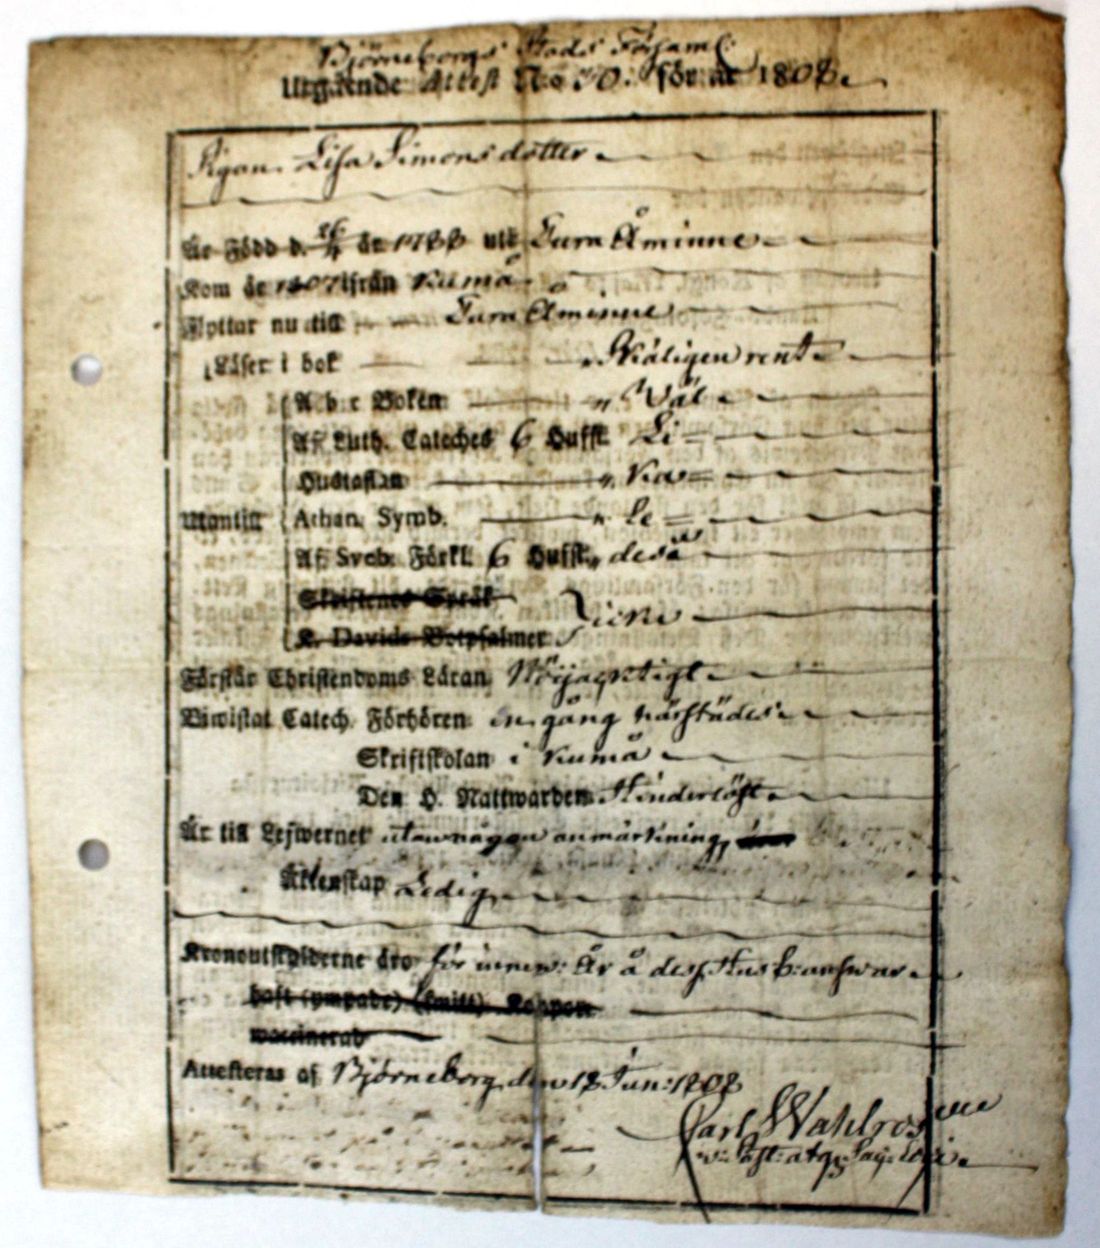 Björneborgs Stads Församl:
Utgående Attest No 30. för år 1808.
Pigan Lisa Simonsdotter
Är Född d. 26/4 år 1788 uti Furu Åminne
Kom år 1807 ifrån Kumå
Flyttar nu till Furu Åminne
Läser i bok Skäligen rent
A b c Boken Väl
Af Luth. Cateches 6 Hufst. Li
Hustaflan ka
Utantill Athan. Symb. Le
Af Sveb. Förkl. 6 Hufst. des
Skriftenes Språk
K. Davids Botpsalmer
Förstår Christendoms Läran Nöjacktigt
Biwistat Catech. Förhören en gång härstädes
Skriftskolan i Kumå
Den H. Nattwarden Hinderlöst
Är till Lefwernet utan någon anmärkning,
Äktenskap Ledig
Kronoutskylderne äro för innew: År å dess Husb: answar
haft (ympade) (smitt) Koppor
waccinerad
Attesteras af Björneborg den 18 Jun: 1808
Carl Wahlroos